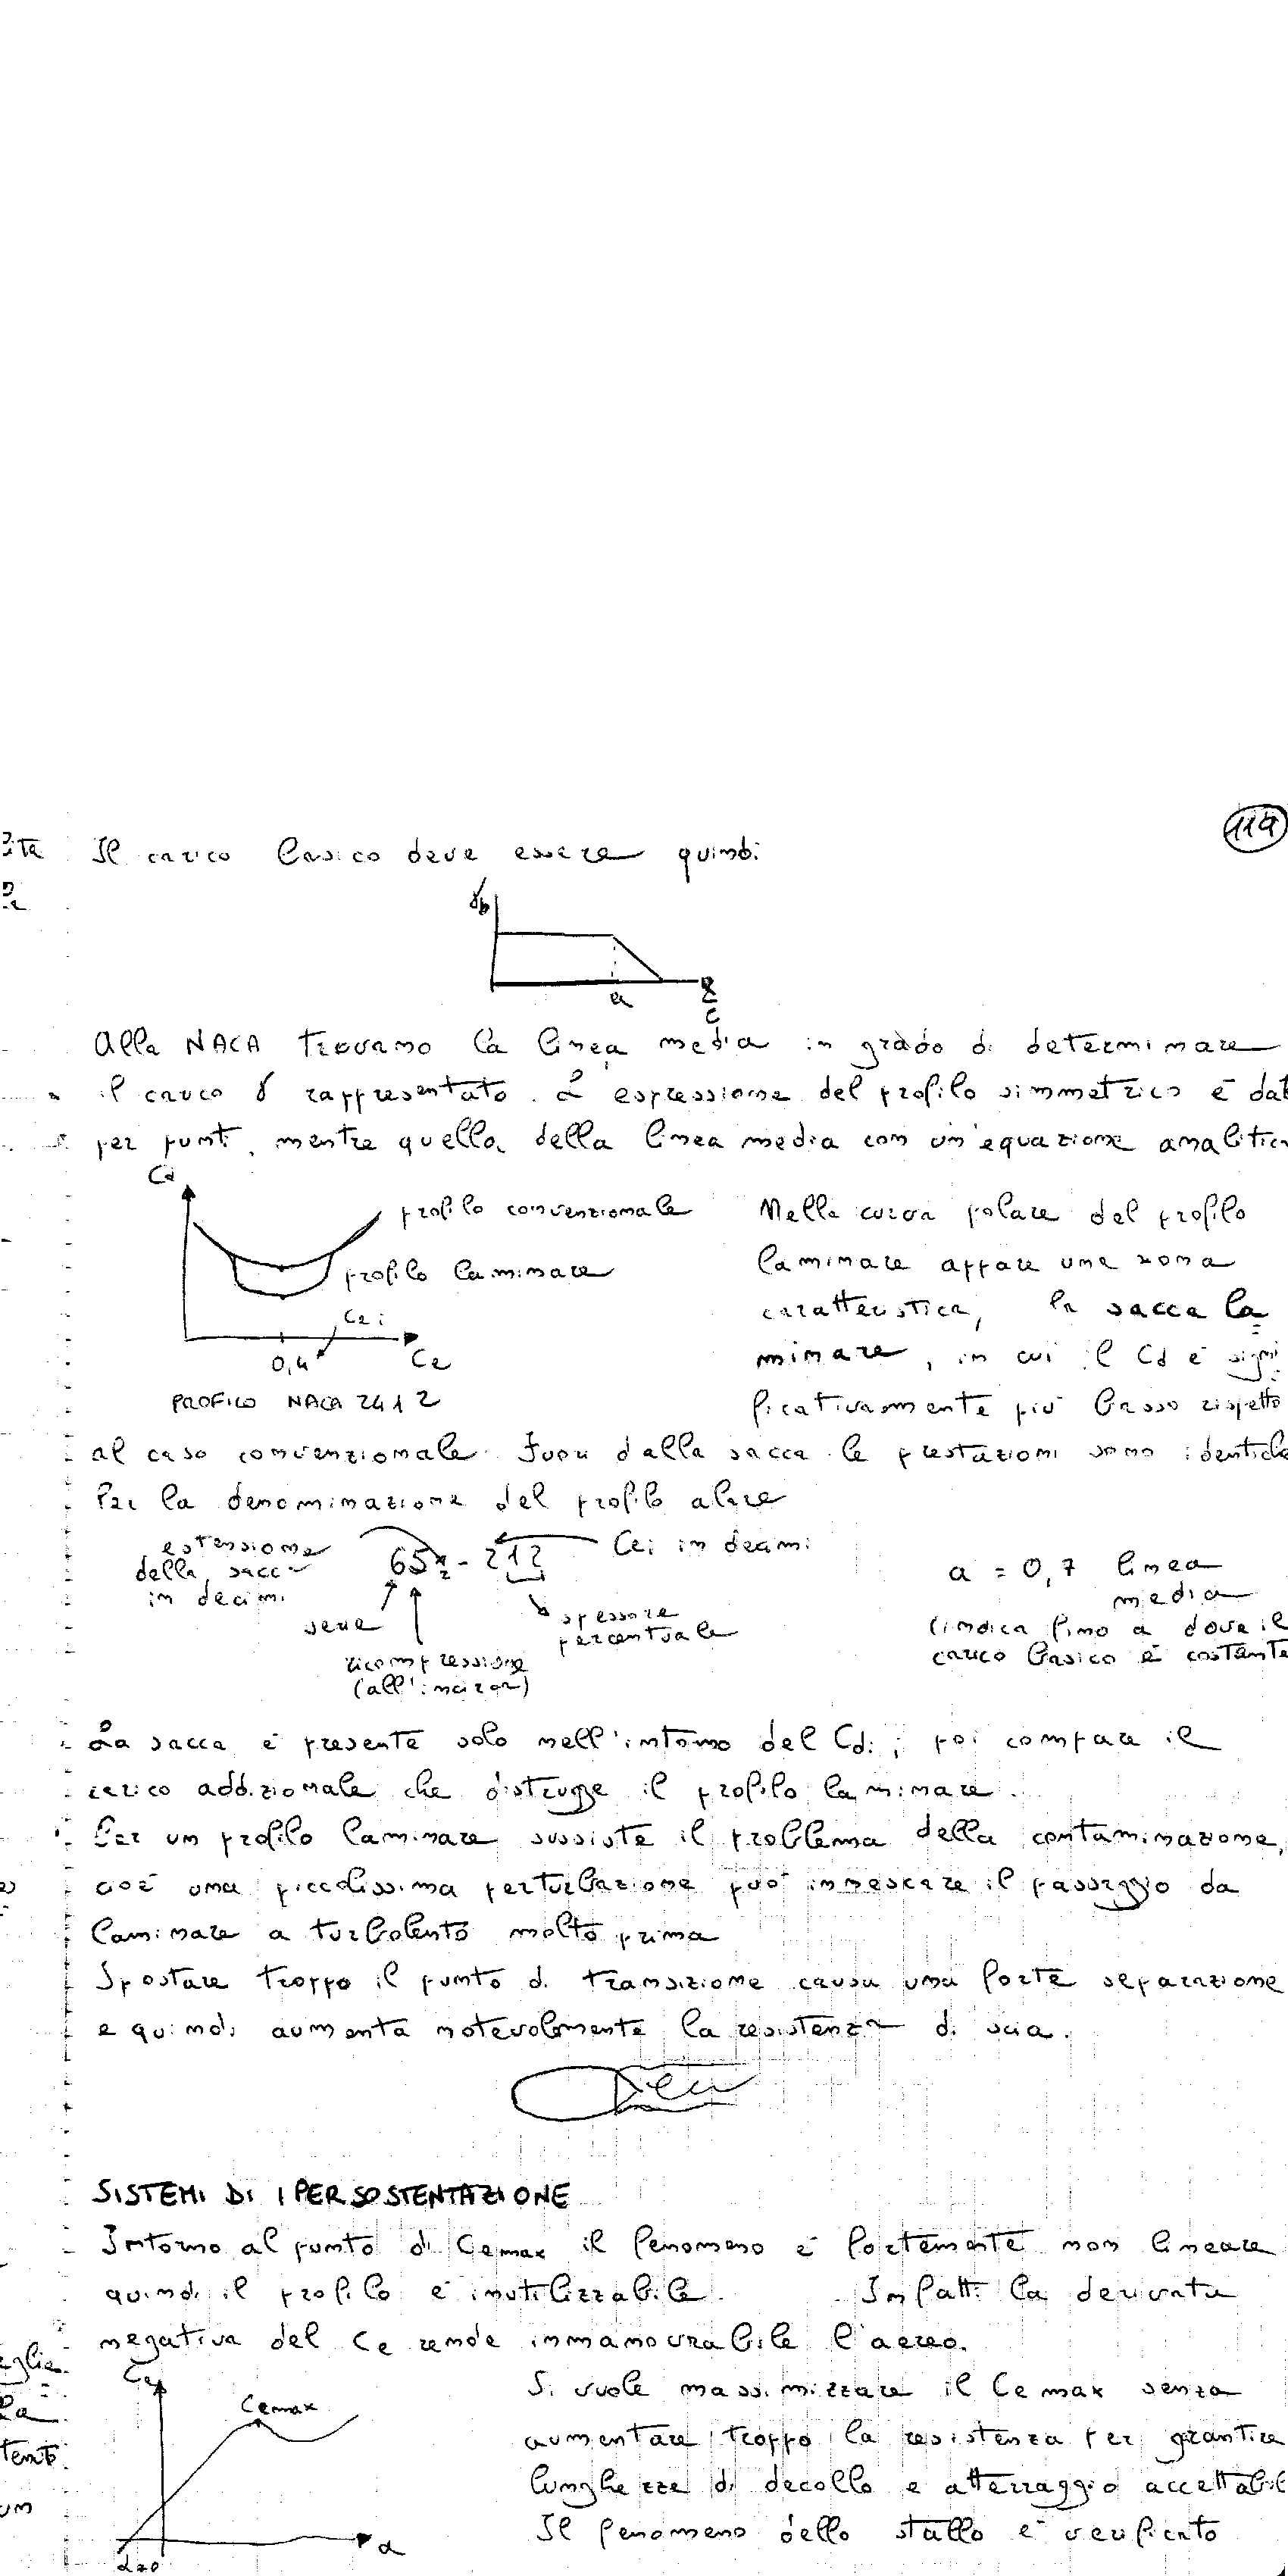 119
Il carico basico deve essere quindi
γb
a
x
c
Alla NACA trovarno la linea media in grado di determinare
il carico γ rappresentato. L'espressione del profilo simmetrico è dat
per punti, mentre quella della linea media con un'equazione analitica
Cd
profilo convenzionale
profilo laminare
Cli
0,4
Cl
PROFILO NACA 2412
Nella curva polare del profilo
laminare appare una zona
caratteristica, la sacca la
minare, in cui il Cd è signi
ficativamente più basso rispetto
al caso convenzionale. Fuori dalla sacca le prestazioni sono identiche
Per la denominazione del profilo alare
estensione
della sacca
in decimi
65₂ - 212
Cli in decimi
serie
ricompressione
(all'incirca)
spessore
percentuale
a = 0,7 linea
media
(indica fino a dove il
carico basico è costante
La sacca è presente solo nell'intorno del Cdi; poi compare il
carico addizionale che distrugge il profilo laminare.
Per un profilo laminare sussiste il problema della contaminazione,
cioè una piccolissima perturbazione può innescare il passaggio da
laminare a turbolento molto prima
Spostare troppo il punto di transizione causa una forte separazione
e quindi aumenta notevolmente la resistenza di scia.
SISTEMI DI IPERSOSTENTAZIONE
Intorno al punto di Clmax il fenomeno è fortemente non lineare
quindi il profilo è inutilizzabile. Infatti la derivata
negativa del Cl rende immanovrabile l'aereo.
Cl
Clmax
α
αzo
Si vuole massimizzare il Cl max senza
aumentare troppo la resistenza per grantire
lunghezze di decollo e atterraggio accettabil
Il fenomeno dello stallo è verificato